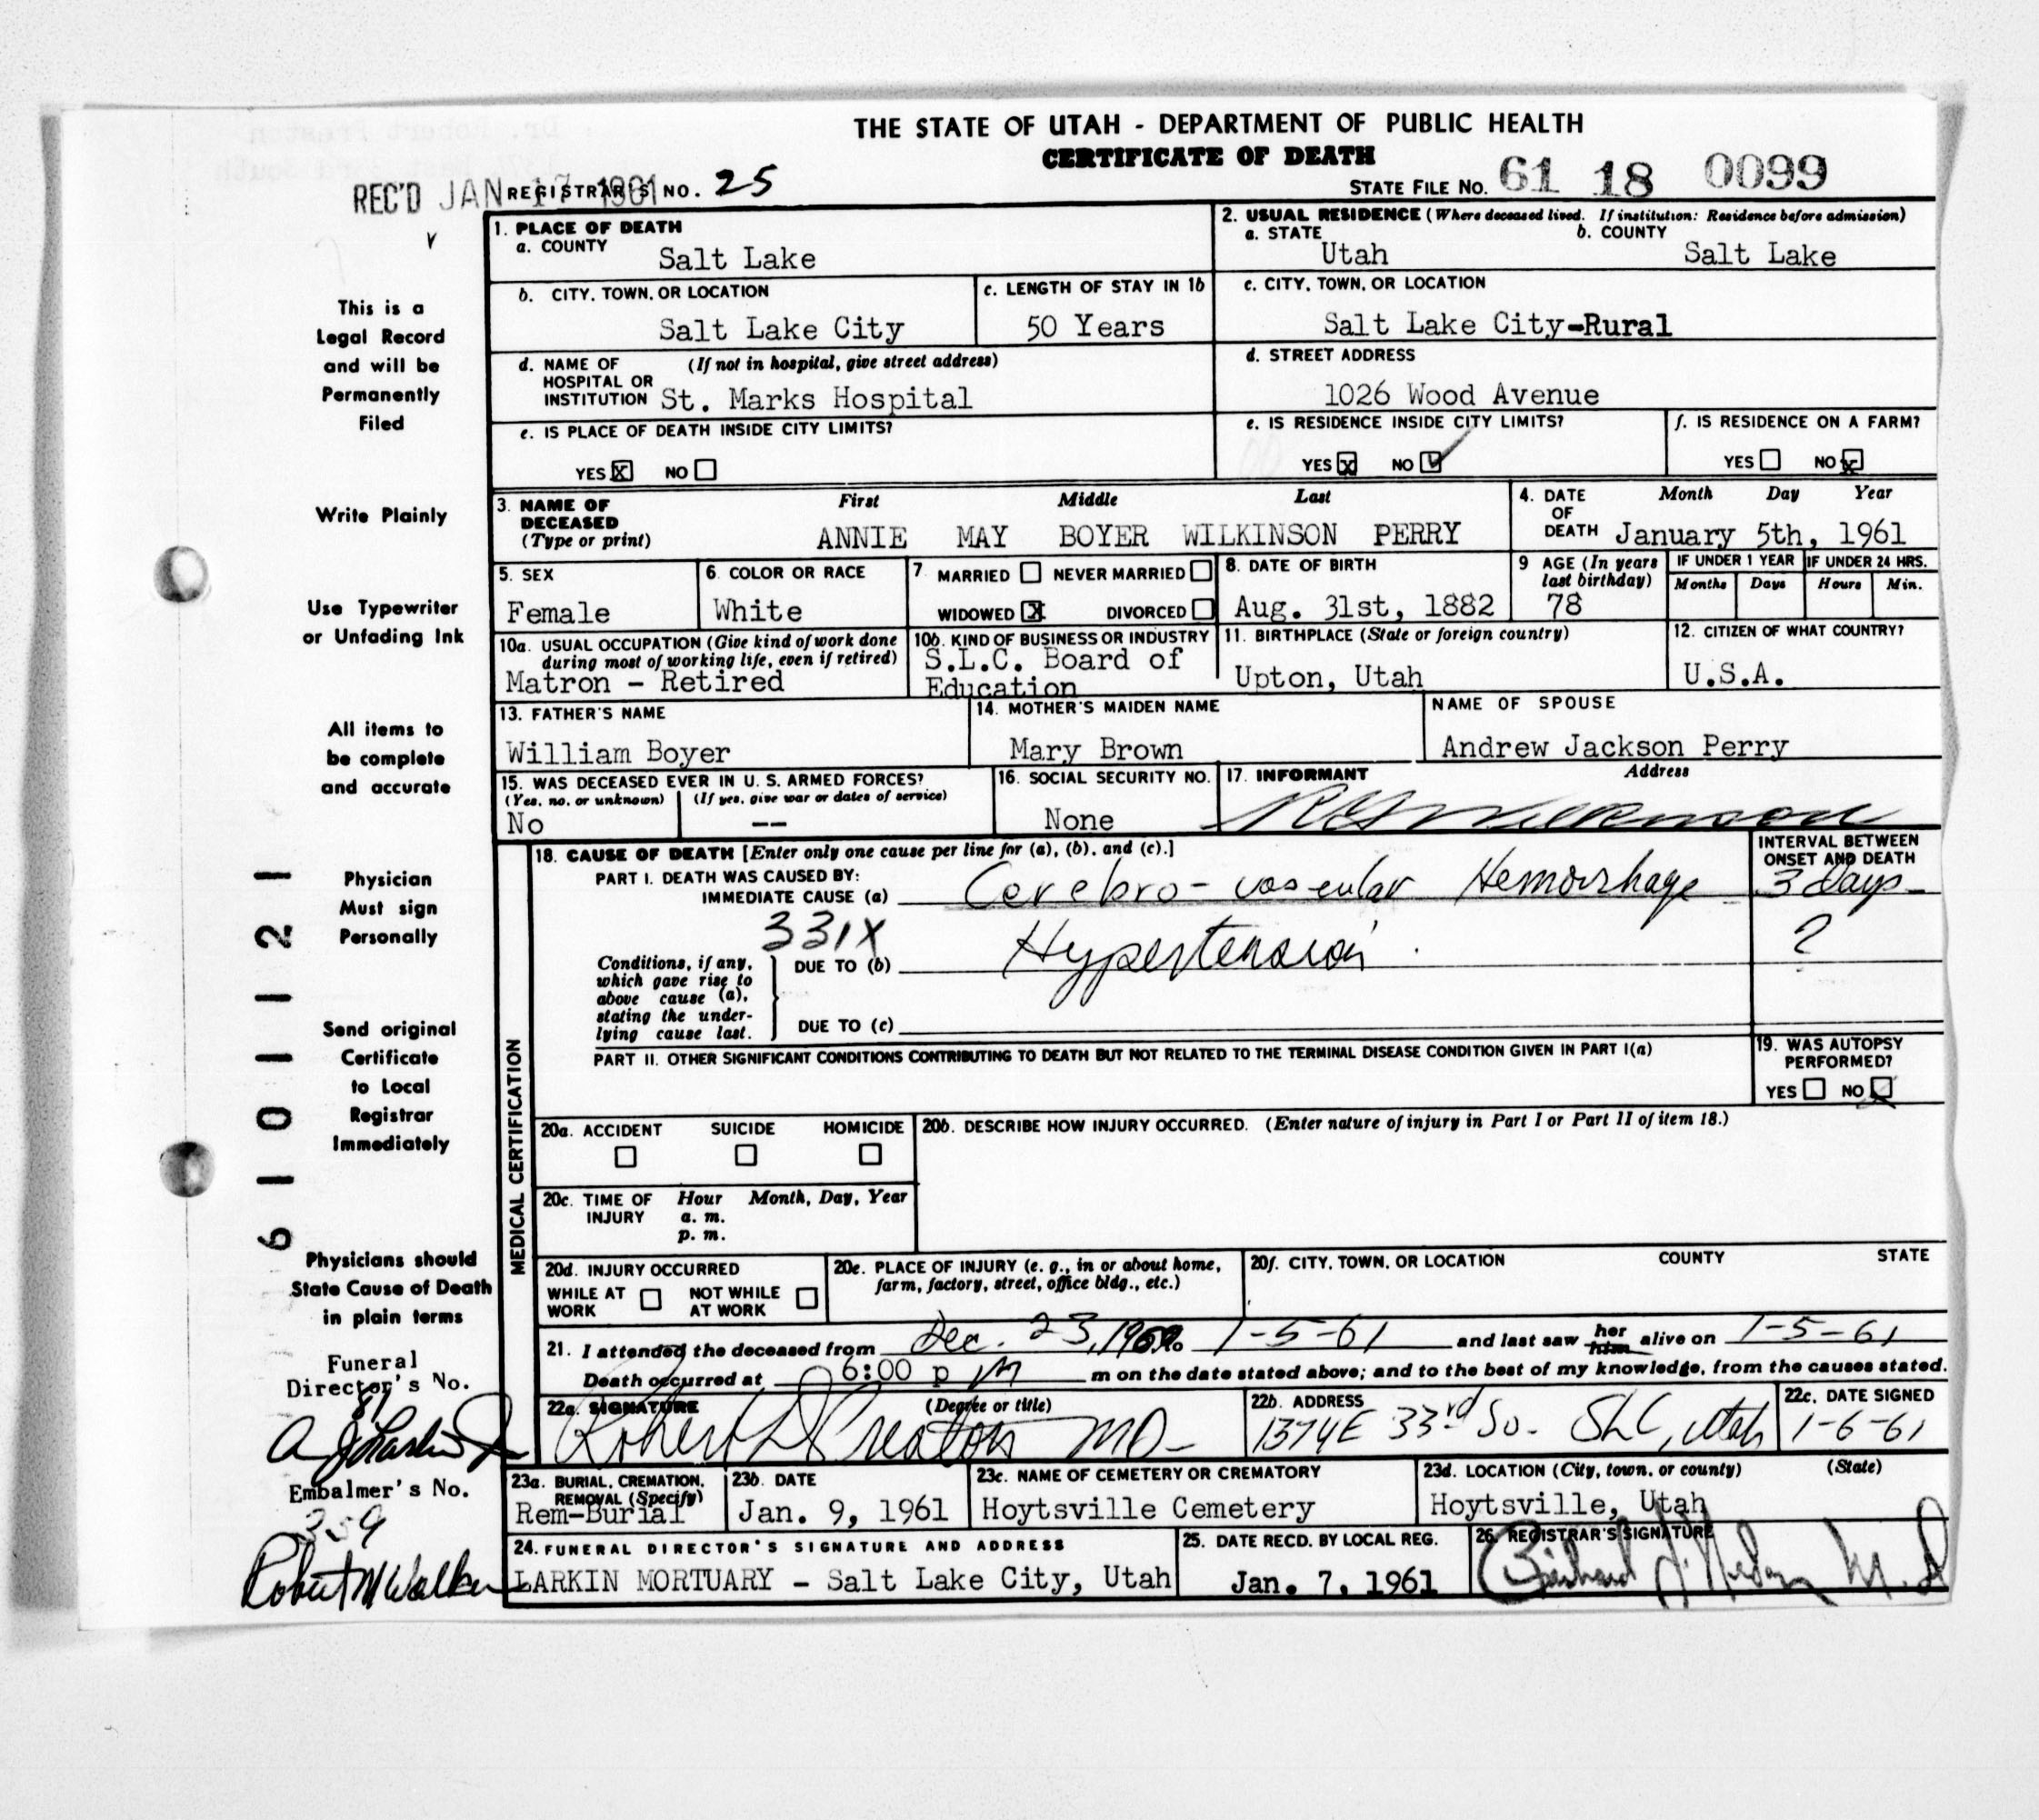 THE STATE OF UTAH - DEPARTMENT OF PUBLIC HEALTH
CERTIFICATE OF DEATH
REC'D JAN 17 1961
REGISTRAR'S NO. 25
STATE FILE NO. 61 18 0099
1. PLACE OF DEATH
a. COUNTY
Salt Lake
2. USUAL RESIDENCE (Where deceased lived. If institution: Residence before admission)
a. STATE
Utah
b. COUNTY
Salt Lake
b. CITY, TOWN, OR LOCATION
Salt Lake City
c. LENGTH OF STAY IN 1b
50 Years
c. CITY, TOWN, OR LOCATION
Salt Lake City-Rural
d. NAME OF (If not in hospital, give street address)
HOSPITAL OR
INSTITUTION St. Marks Hospital
d. STREET ADDRESS
1026 Wood Avenue
e. IS PLACE OF DEATH INSIDE CITY LIMITS?
YES X NO
e. IS RESIDENCE INSIDE CITY LIMITS?
YES X NO ✓
f. IS RESIDENCE ON A FARM?
YES NO X
3. NAME OF
DECEASED
(Type or print)
First Middle Last
ANNIE MAY BOYER WILKINSON PERRY
4. DATE
OF
DEATH
Month Day Year
January 5th, 1961
5. SEX
Female
6. COLOR OR RACE
White
7 MARRIED NEVER MARRIED
WIDOWED X DIVORCED
8. DATE OF BIRTH
Aug. 31st, 1882
9 AGE (In years
last birthday)
78
IF UNDER 1 YEAR
Months Days
IF UNDER 24 HRS.
Hours Min.
10a. USUAL OCCUPATION (Give kind of work done
during most of working life, even if retired)
Matron - Retired
10b. KIND OF BUSINESS OR INDUSTRY
S.L.C. Board of
Education
11. BIRTHPLACE (State or foreign country)
Upton, Utah
12. CITIZEN OF WHAT COUNTRY?
U.S.A.
13. FATHER'S NAME
William Boyer
14. MOTHER'S MAIDEN NAME
Mary Brown
NAME OF SPOUSE
Andrew Jackson Perry
15. WAS DECEASED EVER IN U. S. ARMED FORCES?
(Yes, no, or unknown) (If yes, give war or dates of service)
No --
16. SOCIAL SECURITY NO.
None
17. INFORMANT Address
Wilkinson
MEDICAL CERTIFICATION
18. CAUSE OF DEATH [Enter only one cause per line for (a), (b), and (c).]
PART I. DEATH WAS CAUSED BY:
IMMEDIATE CAUSE (a) Cerebro-vascular Hemorrhage
INTERVAL BETWEEN
ONSET AND DEATH
3 days-
331X
Conditions, if any,
which gave rise to
above cause (a),
stating the under-
lying cause last.
DUE TO (b) Hypertension
?
DUE TO (c)
PART II. OTHER SIGNIFICANT CONDITIONS CONTRIBUTING TO DEATH BUT NOT RELATED TO THE TERMINAL DISEASE CONDITION GIVEN IN PART I(a)
19. WAS AUTOPSY
PERFORMED?
YES NO X
20a. ACCIDENT SUICIDE HOMICIDE
20b. DESCRIBE HOW INJURY OCCURRED. (Enter nature of injury in Part I or Part II of item 18.)
20c. TIME OF Hour Month, Day, Year
INJURY a. m.
p. m.
20d. INJURY OCCURRED
WHILE AT NOT WHILE
WORK AT WORK
20e. PLACE OF INJURY (e. g., in or about home,
farm, factory, street, office bldg., etc.)
20f. CITY, TOWN, OR LOCATION COUNTY STATE
21. I attended the deceased from Dec. 23, 1960 to 1-5-61 and last saw her him alive on 1-5-61
Death occurred at 6:00 p m m on the date stated above; and to the best of my knowledge, from the causes stated.
22a. SIGNATURE (Degree or title)
Robert D Preston MD-
22b. ADDRESS
1374E 33rd So. SLC, Utah
22c. DATE SIGNED
1-6-61
23a. BURIAL, CREMATION,
REMOVAL (Specify)
Rem-Burial
23b. DATE
Jan. 9, 1961
23c. NAME OF CEMETERY OR CREMATORY
Hoytsville Cemetery
23d. LOCATION (City, town, or county) (State)
Hoytsville, Utah
24. FUNERAL DIRECTOR'S SIGNATURE AND ADDRESS
LARKIN MORTUARY - Salt Lake City, Utah
25. DATE RECD. BY LOCAL REG.
Jan. 7, 1961
26. REGISTRAR'S SIGNATURE
M. D
This is a
Legal Record
and will be
Permanently
Filed
Write Plainly
Use Typewriter
or Unfading Ink
All items to
be complete
and accurate
Physician
Must sign
Personally
Send original
Certificate
to Local
Registrar
Immediately
Physicians should
State Cause of Death
in plain terms
Funeral
Director's No.
81
A J Larkin Jr
Embalmer's No.
359
Robert M Walker